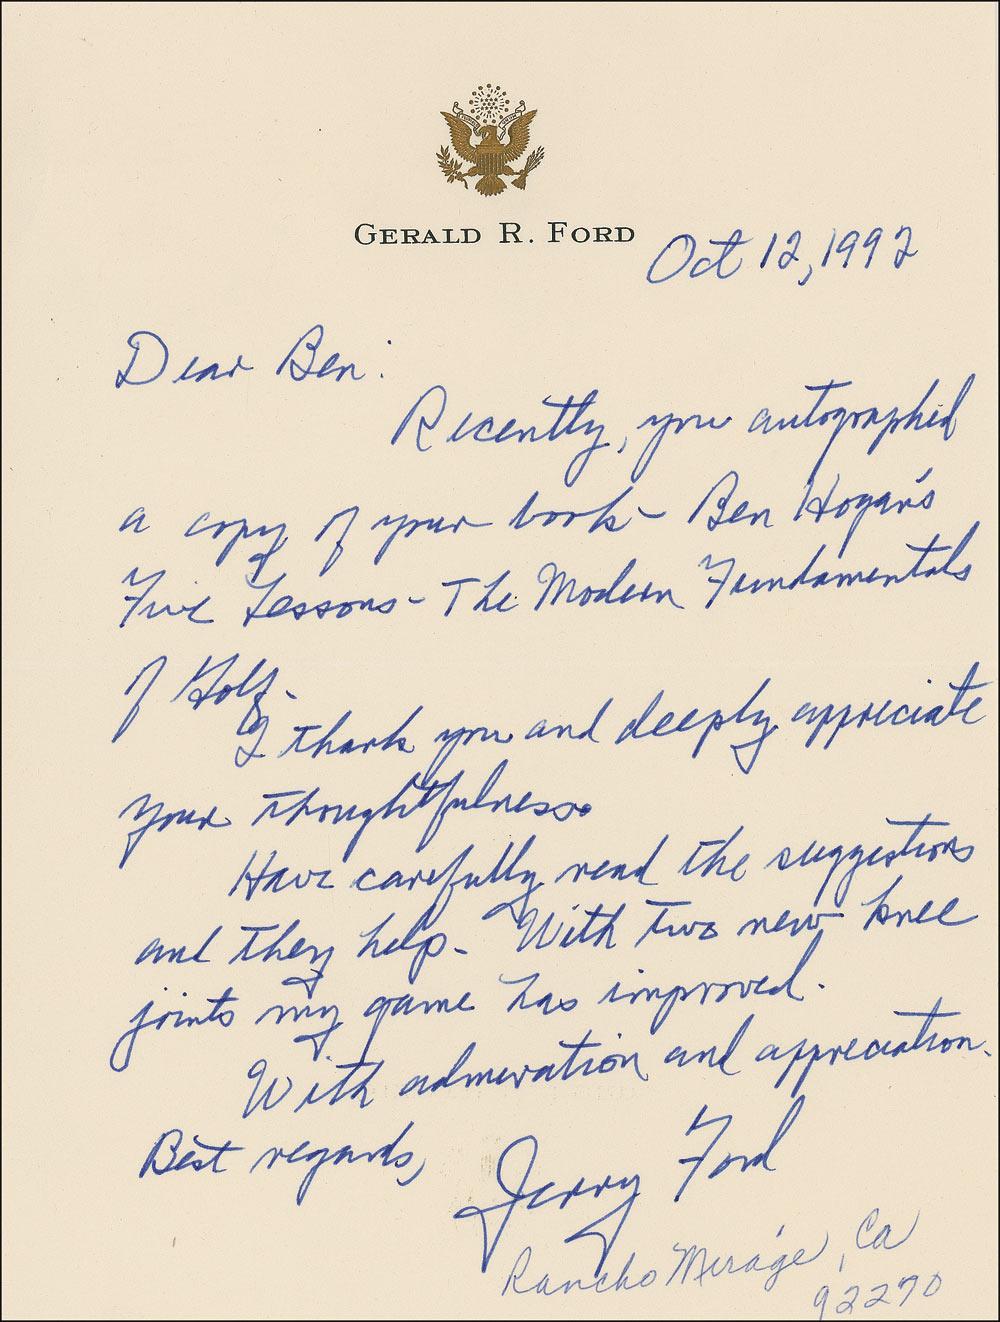 GERALD R. FORD
Oct 12, 1992
Dear Ben:
Recently, you autographed
a copy of your book - Ben Hogan's
Five Lessons - The Modern Fundamentals
of Golf.
I thank you and deeply appreciate
your thoughtfulness.
Have carefully read the suggestions
and they help. With two new knee
joints my game has improved.
With admiration and appreciation.
Best regards,
Jerry Ford
Rancho Mirage, Ca
92270